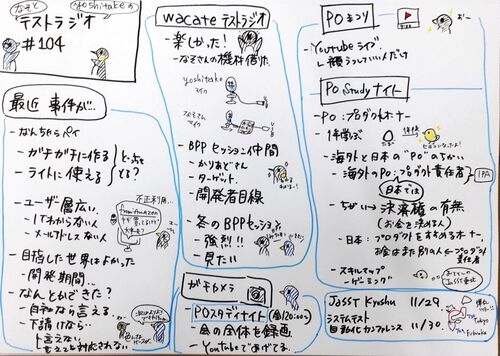 なそと yoshitakeの
テストラジオ
#104
最近 事件が…
- なんちゃらペイ
- ガチガチに作る
- ライトに使える
どっちをとる?
- ユーザー層広い
- ITわからない人
- メールアドレスない人
不正利用…
- 目指した世界はよかった
- 開発期間…
- なんとかできた?
- 自社なら言える
- 下請けなら…
- 言えない
- 言うことが対応されない
wacate テストラジオ
- 楽しかった!
- なそさんの機材借りた
yoshitake
マイク
なそさん
マイク
- BPPセッション仲間
- かりあどさん
- ターゲット
- 開発者目線
- 冬のBPPセッション
- 強烈!!
- 見たい
ガチカメラ
POスタディナイト(金120:00〜)
- 会の全体を録画
- YouTubeであげてる
POまつり
- Youtubeライブ
顔うつしていい人だけ
おー
PO Studyナイト
- PO:プロダクトオーナー
- 1年学ぶ
- 海外と日本の"PO"のちがい
- 海外のPO:プロダクト責任者
IPA
日本では
- ちがい→決裁権の有無
(お金を決める人)
- 日本:プロダクトをすすめるオーナー
お金はまた別の人←プロダクト責任者
- スキルマップ
- ゲーミング
JaSST Kyushu 11/29
システムテスト
自動化カンファレンス 11/30
Tokyo
Fukuoka